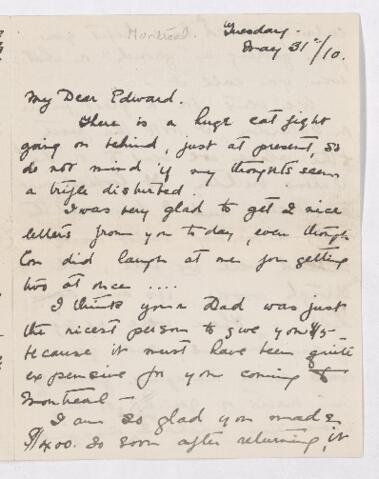 Montreal.
Tuesday.
May 31st/10.
My Dear Edward.
There is a huge cat fight
going on behind, just at present, so
do not mind if my thoughts seem
a trifle disturbed.
I was very glad to get 2 nice
letters from you to day, even though
Con did laugh at me for getting
two at once ....
I think your Dad was just
the nicest person to give you $5-
because it must have been quite
expensive for you coming to
Montreal -
I am so glad you made
so soon after returning, it